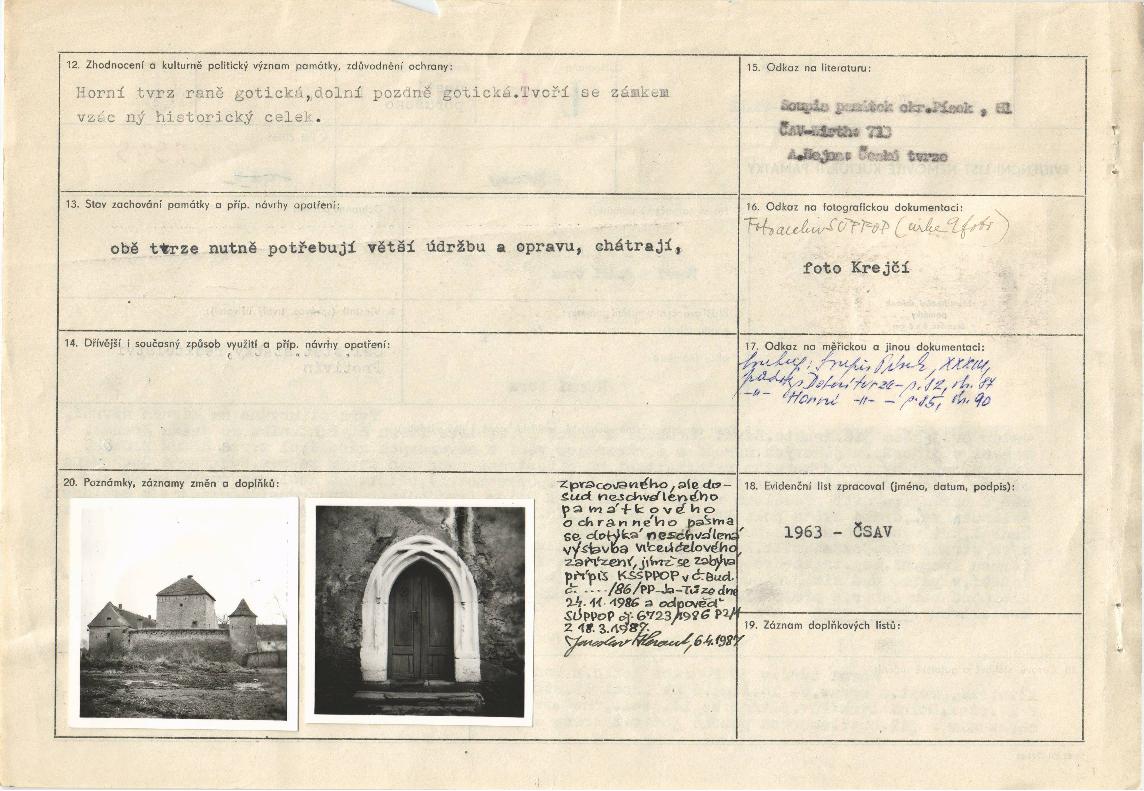 12. Zhodnocení a kulturně politický význam památky, zdůvodnění ochrany:
Horní tvrz raně gotická,dolní pozdně gotická.Tvoří se zámkem
vzác ný historický celek.
15. Odkaz na literaturu:
Soupis památek okr.Písek , 81
ČAV-Wirth: 713
A.Hejna: České tvrze
13. Stav zachování památky a příp. návrhy opatření:
obě tvrze nutně potřebují větší údržbu a opravu, chátrají,
16. Odkaz na fotografickou dokumentaci:
Fotoarchiv SÚPPOP
foto Krejčí
14. Dřívější i současný způsob využití a příp. návrhy opatření:
17. Odkaz na měřickou a jinou dokumentaci:
Soupis Písek, XXXIII,
Dolení tvrz - p. 82, obr. 87
-"- Horní -"- - p. 85, obr. 90
20. Poznámky, záznamy změn a doplňků:
zpracovaného, ale do-
sud neschváleného
památkového
ochranného pásma
se dotýká neschválená
výstavba víceúčelového
zařízení, jímž se zabývá
přípis KSSPPOP v Č. Bud.
č. ····/86/PP-Ja-Tů ze dne
24.11.1986 a odpověď
SÚPPOP čj. 6723/1986
z 18.3.1987.
Jaroslav 6.4.1987
18. Evidenční list zpracoval (jméno, datum, podpis):
1963 - ČSAV
19. Záznam doplňkových listů: